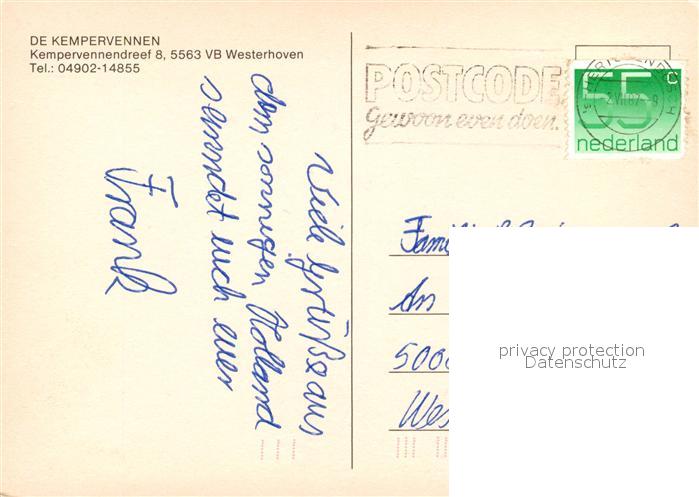 DE KEMPERVENNEN
Kempervennendreef 8, 5563 VB Westerhoven
Tel.: 04902-14855
POSTCODE
Gewoon even doen.
55 c
nederland
Viele Grüße aus
dem sonnigen Holland
sendet euch euer
Frank
An
privacy protection
Datenschutz